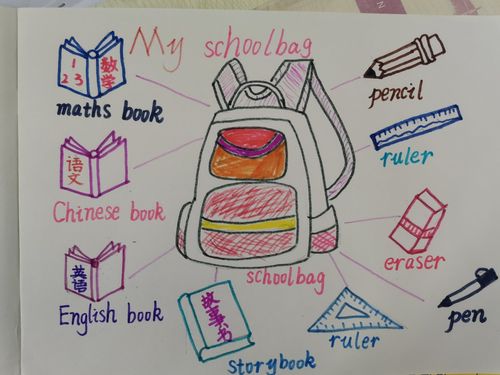 My schoolbag
1
2 3
数学
maths book
pencil
语文
Chinese book
ruler
英语
English book
schoolbag
eraser
故事书
storybook
ruler
pen